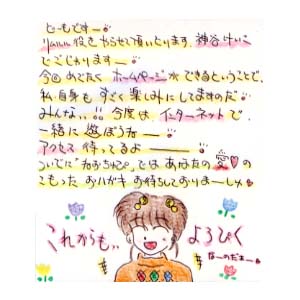 どーもですー
役をやらせて頂いとります、神谷けいこ
でごじゃります ー
今回めでたく ホームページができるということで、
私自身も すごく楽しみにしてますのだ
みんなぁ、!! 今度は、インターネットで、
一緒に 遊ぼうねー
アクセス 待ってるよー
ついでに とは あなたの 愛♥の
こもった おハガキ お待ちしておりまーしゅ♥
これからも、、 よろぴく
なーのだぁー